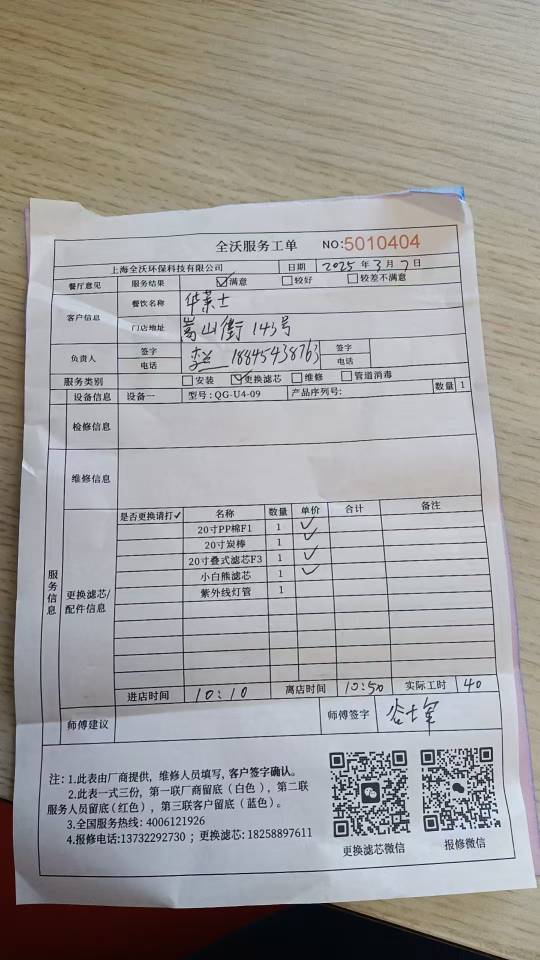 全沃服务工单 NO:5010404
上海全沃环保科技有限公司 日期 2025年3月7日
餐厅意见 服务结果 ☑满意 □较好 □较差不满意
客户信息 餐饮名称 华莱士
门店地址 嵩山街143号
负责人 签字 电话 李兰 18845438763 签字 电话
服务类别 □安装 ☑更换滤芯 □维修 □管道消毒
设备信息 设备一 型号: QG-U4-09 产品序列号: 数量 1
检修信息
维修信息
服务信息
更换滤芯/配件信息
是否更换请打✓ 名称 数量 单价 合计 备注
20寸PP棉F1 1 ✓
20寸炭棒 1 ✓
20寸叠式滤芯F3 1 ✓
小白熊滤芯 1 ✓
紫外线灯管 1
进店时间 10:10 离店时间 10:50 实际工时 40
师傅建议 师傅签字
注: 1.此表由厂商提供，维修人员填写, 客户签字确认。
2.此表一式三份，第一联厂商留底（白色），第二联
服务人员留底(红色），第三联客户留底（蓝色）。
3.全国服务热线: 4006121926
4.报修电话:13732292730 ; 更换滤芯: 18258897611
更换滤芯微信 报修微信